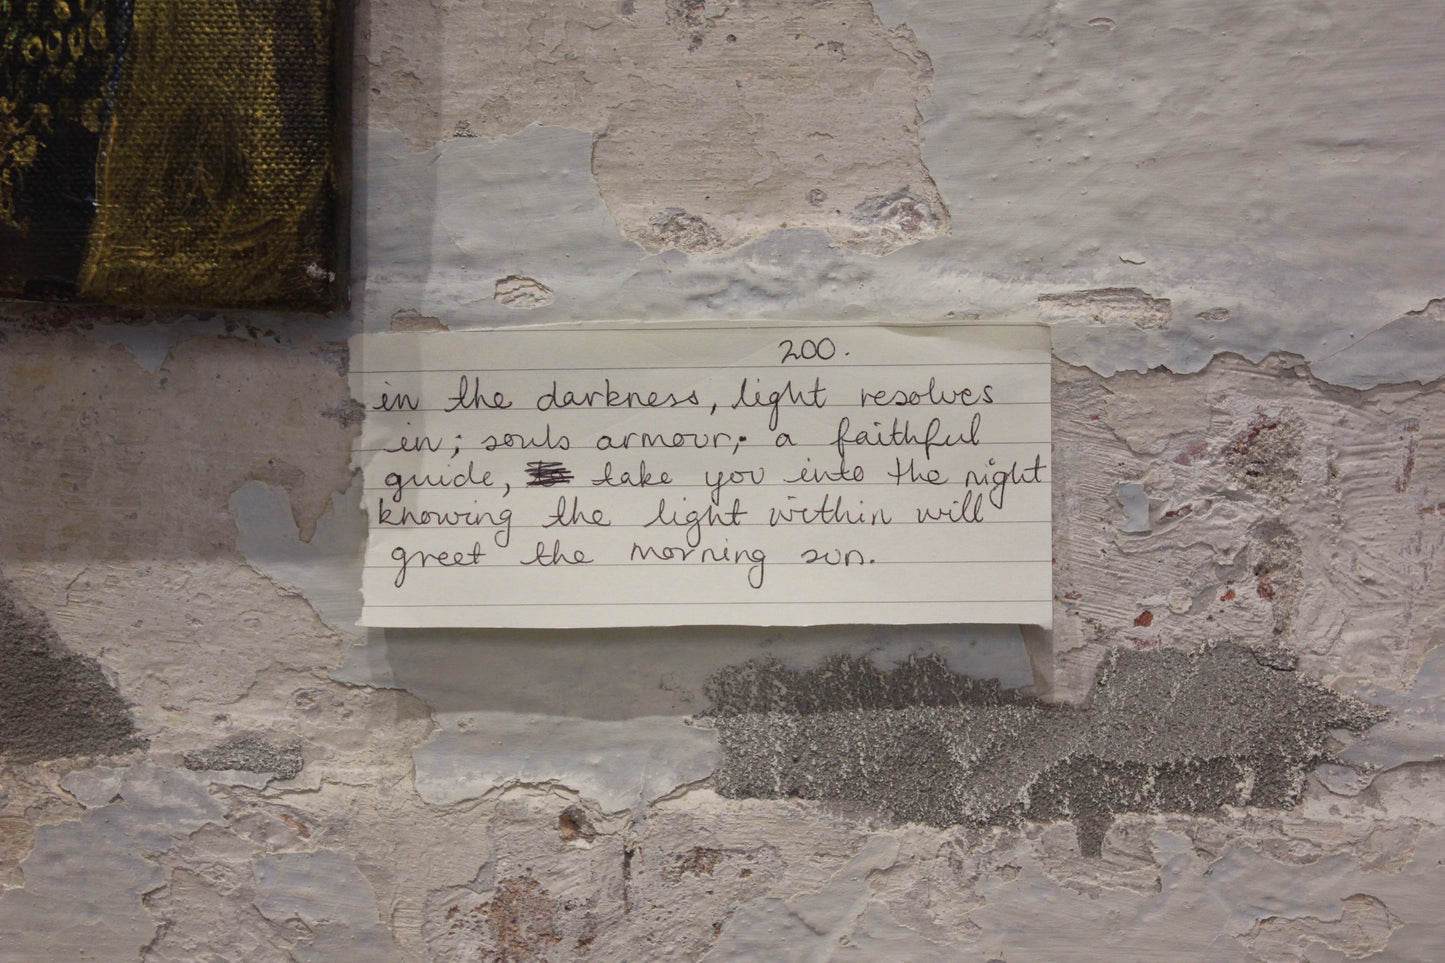 200.
in the darkness, light resolves
in; souls armour; a faithful
guide, take you into the night
knowing the light within will
greet the morning sun.